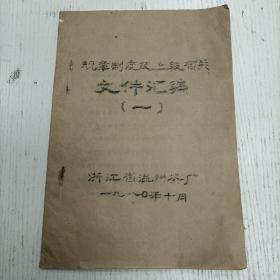 规章制度及上级有关
文件汇编
（一）
浙江省温州茶厂
一九八〇年十月